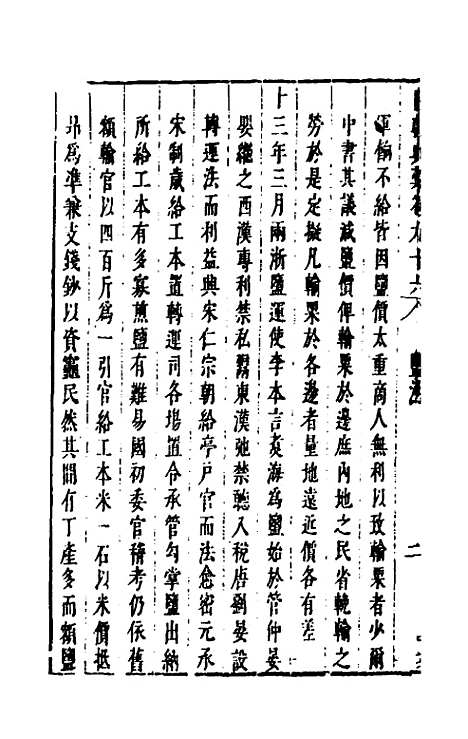 卷九十六 鹽法 二
運餉不給皆因鹽價太重商人無利以致輸粟者少爾
中書其議減鹽價俾輸粟於邊庶內地之民省輓輸之
勞於是定擬凡輸粟於各邊者量地遠近價各有差
十三年三月兩浙鹽運使李本言煮海為鹽始於管仲晏
嬰繼之西漢專利禁私鬻東漢弛禁聽入稅唐劉晏設
轉運法而利益興宋仁宗朝給亭戶官而法愈密元承
宋制歲給工本置轉運司各場置令承管勾掌鹽出納
所給工本有多寡煎鹽有難易國初委官稽考仍依舊
額輸官以四百斤為一引官給工本米一石以米價抵
昻為準兼支錢鈔以資竈民然其間有丁產多而額鹽